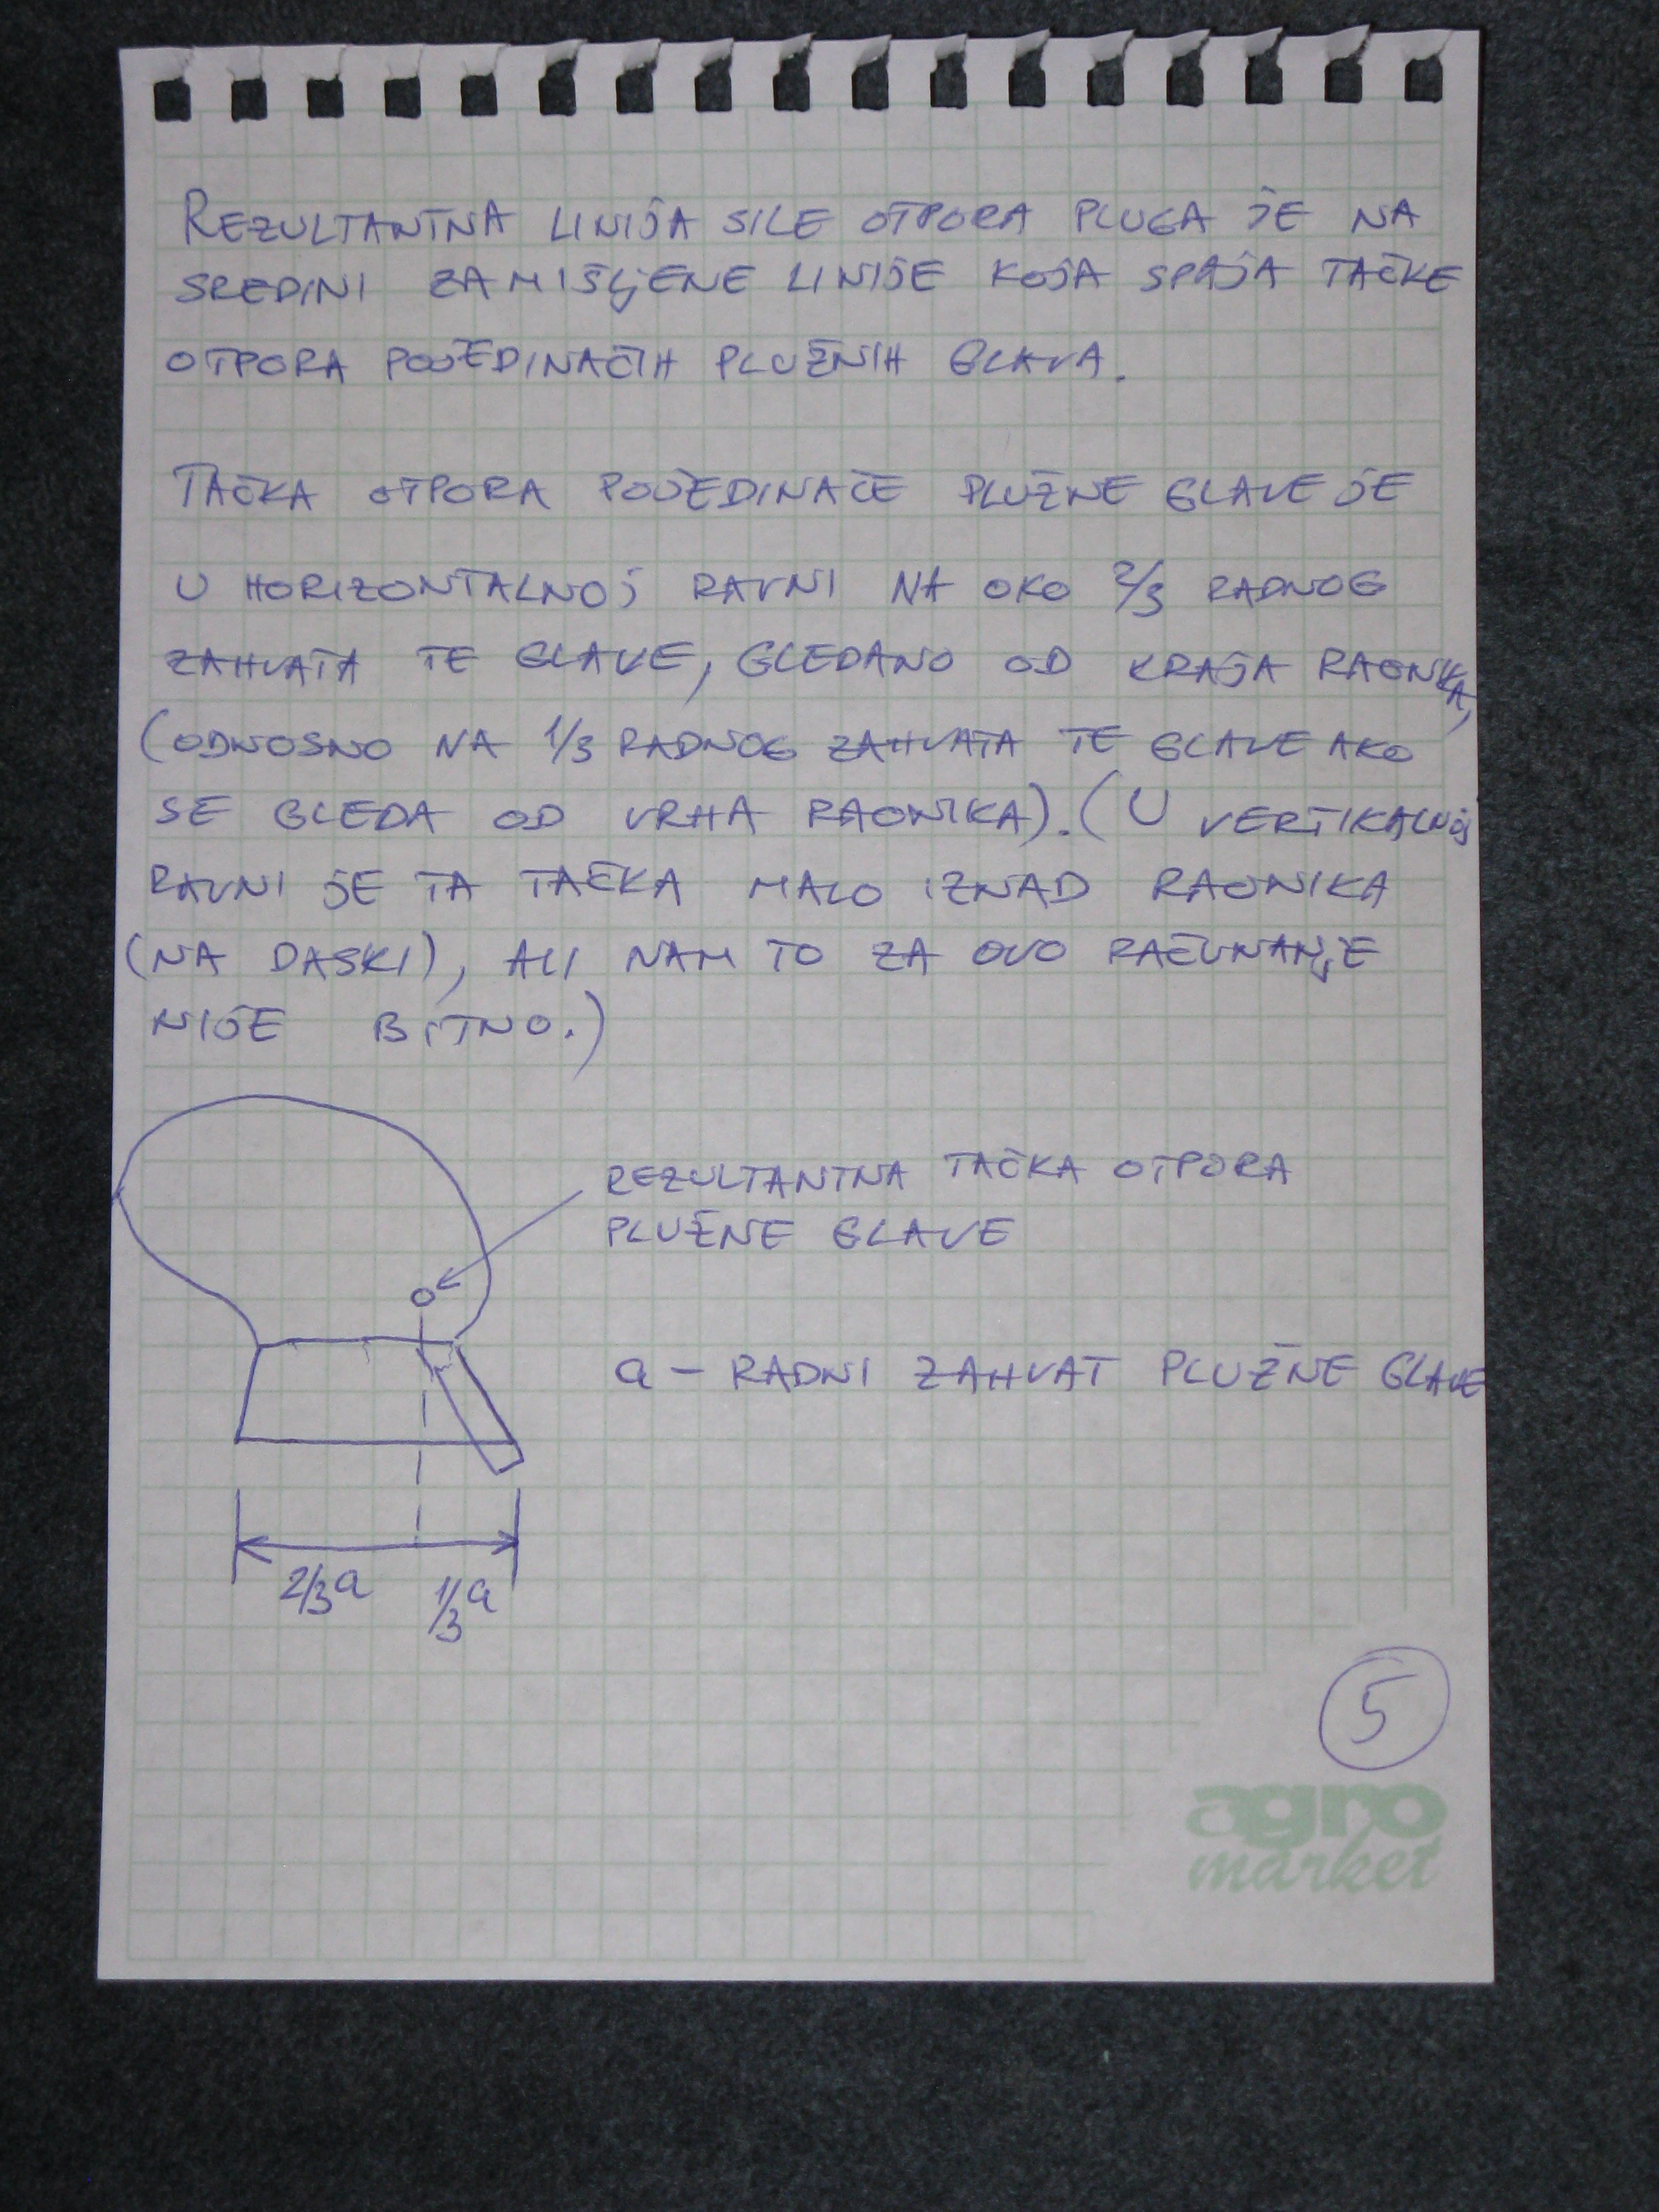 REZULTANTNA LINIJA SILE OTPORA PLUGA JE NA
SREDINI ZAMIŠLJENE LINIJE KOJA SPAJA TAČKE
OTPORA POJEDINAČIH PLUŽNIH GLAVA.
TAČKA OTPORA POJEDINAČE PLUŽNE GLAVE JE
U HORIZONTALNOJ RAVNI NA OKO 2/3 RADNOG
ZAHVATA TE GLAVE, GLEDANO OD KRAJA RAONIKA,
(ODNOSNO NA 1/3 RADNOG ZAHVATA TE GLAVE AKO
SE GLEDA OD VRHA RAONIKA). (U VERTIKALNOJ
RAVNI JE TA TAČKA MALO IZNAD RAONIKA
(NA DASKI), ALI NAM TO ZA OVO RAČUNANJE
NIJE BITNO.)
REZULTANTNA TAČKA OTPORA
PLUŽNE GLAVE
a - RADNI ZAHVAT PLUŽNE GLAVE
2/3 a 1/3 a
5
agro
market